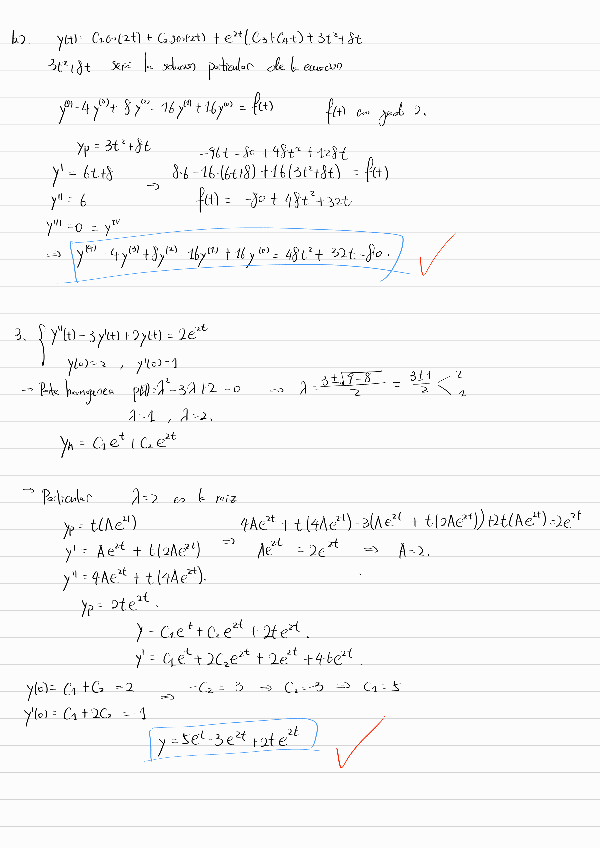 b). y(t) = C₁cos(2t) + C₂sen(2t) + e^{2t}(C₃ + C₄t) + 3t² + 8t
3t² + 8t será la solución particular de la ecuación
y⁽⁴⁾ - 4y⁽³⁾ + 8y⁽²⁾ - 16y⁽¹⁾ + 16y⁽⁰⁾ = f(t)    f(t) con grado 2.
yp = 3t² + 8t    -96t - 80 + 48t² + 128t
y' = 6t + 8 ⇒ 8·6 - 16·(6t+8) + 16(3t²+8t) = f(t)
y'' = 6    f(t) = -80 + 48t² + 32t
y''' = 0 = y^{IV}
⇒ y⁽⁴⁾ - 4y⁽³⁾ + 8y⁽²⁾ - 16y⁽¹⁾ + 16y⁽⁰⁾ = 48t² + 32t - 80.
3. { y''(t) - 3y'(t) + 2y(t) = 2e^{2t}
y(0) = 2 , y'(0) = 1
→ Parte homogenea p(λ) = λ² - 3λ + 2 = 0 ⇒ λ = (3 ± √(9-8))/2 = (3 ± 1)/2 < 2
1
λ = 1 , λ = 2.
yh = C₁e^t + C₂e^{2t}
→ Particular λ = 2 es la raiz
yp = t(Ae^{2t})    4Ae^{2t} + t(4Ae^{2t}) - 3(Ae^{2t} + t(2Ae^{2t})) + 2t(Ae^{2t}) = 2e^{2t}
y' = Ae^{2t} + t(2Ae^{2t}) ⇒ Ae^{2t} = 2e^{2t} ⇒ A = 2.
y'' = 4Ae^{2t} + t(4Ae^{2t}).
yp = 2te^{2t}.
y = C₁e^t + C₂e^{2t} + 2te^{2t}.
y' = C₁e^t + 2C₂e^{2t} + 2e^{2t} + 4te^{2t}.
y(0) = C₁ + C₂ = 2 ⇒ -C₂ = 3 → C₂ = -3 ⇒ C₁ = 5
y'(0) = C₁ + 2C₂ = 1
y = 5e^t - 3e^{2t} + 2te^{2t}